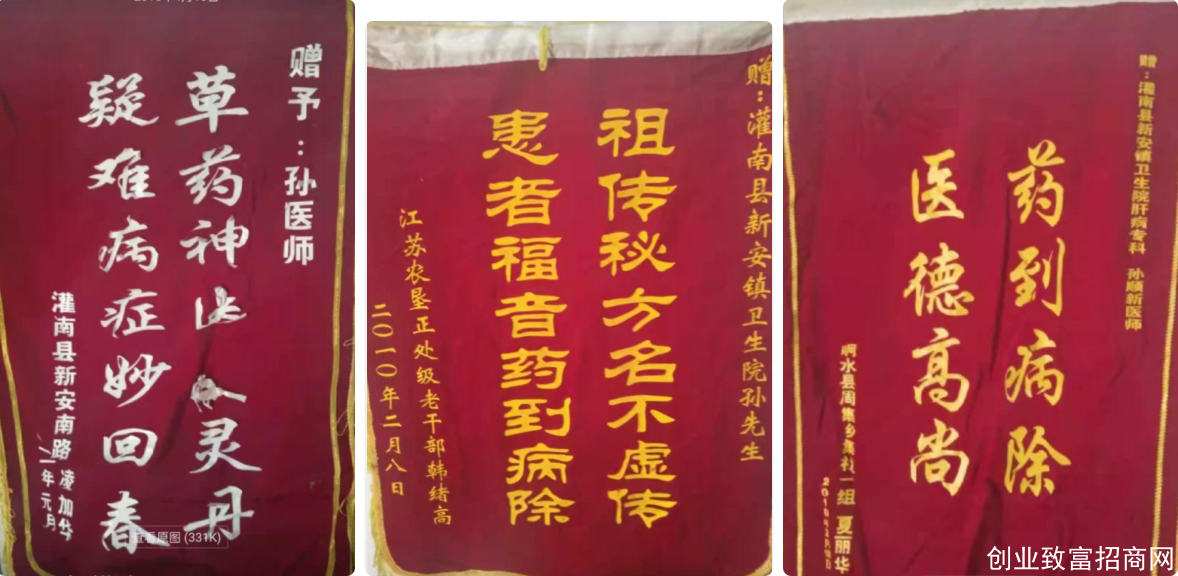 赠予：孙医师
草药神医灵丹
疑难病症妙回春
灌南县新安南路
凌加华
年元月
查看原图 (331K)
赠：灌南县新安镇卫生院孙先生
祖传秘方名不虚传
患者福音药到病除
江苏农垦正处级老干部韩绪高
二〇一〇年二月八日
赠：灌南县新安镇卫生院肝病专科 孙顺新医师
药到病除
医德高尚
水县周集乡集村一组 夏丽华
创业致富招商网